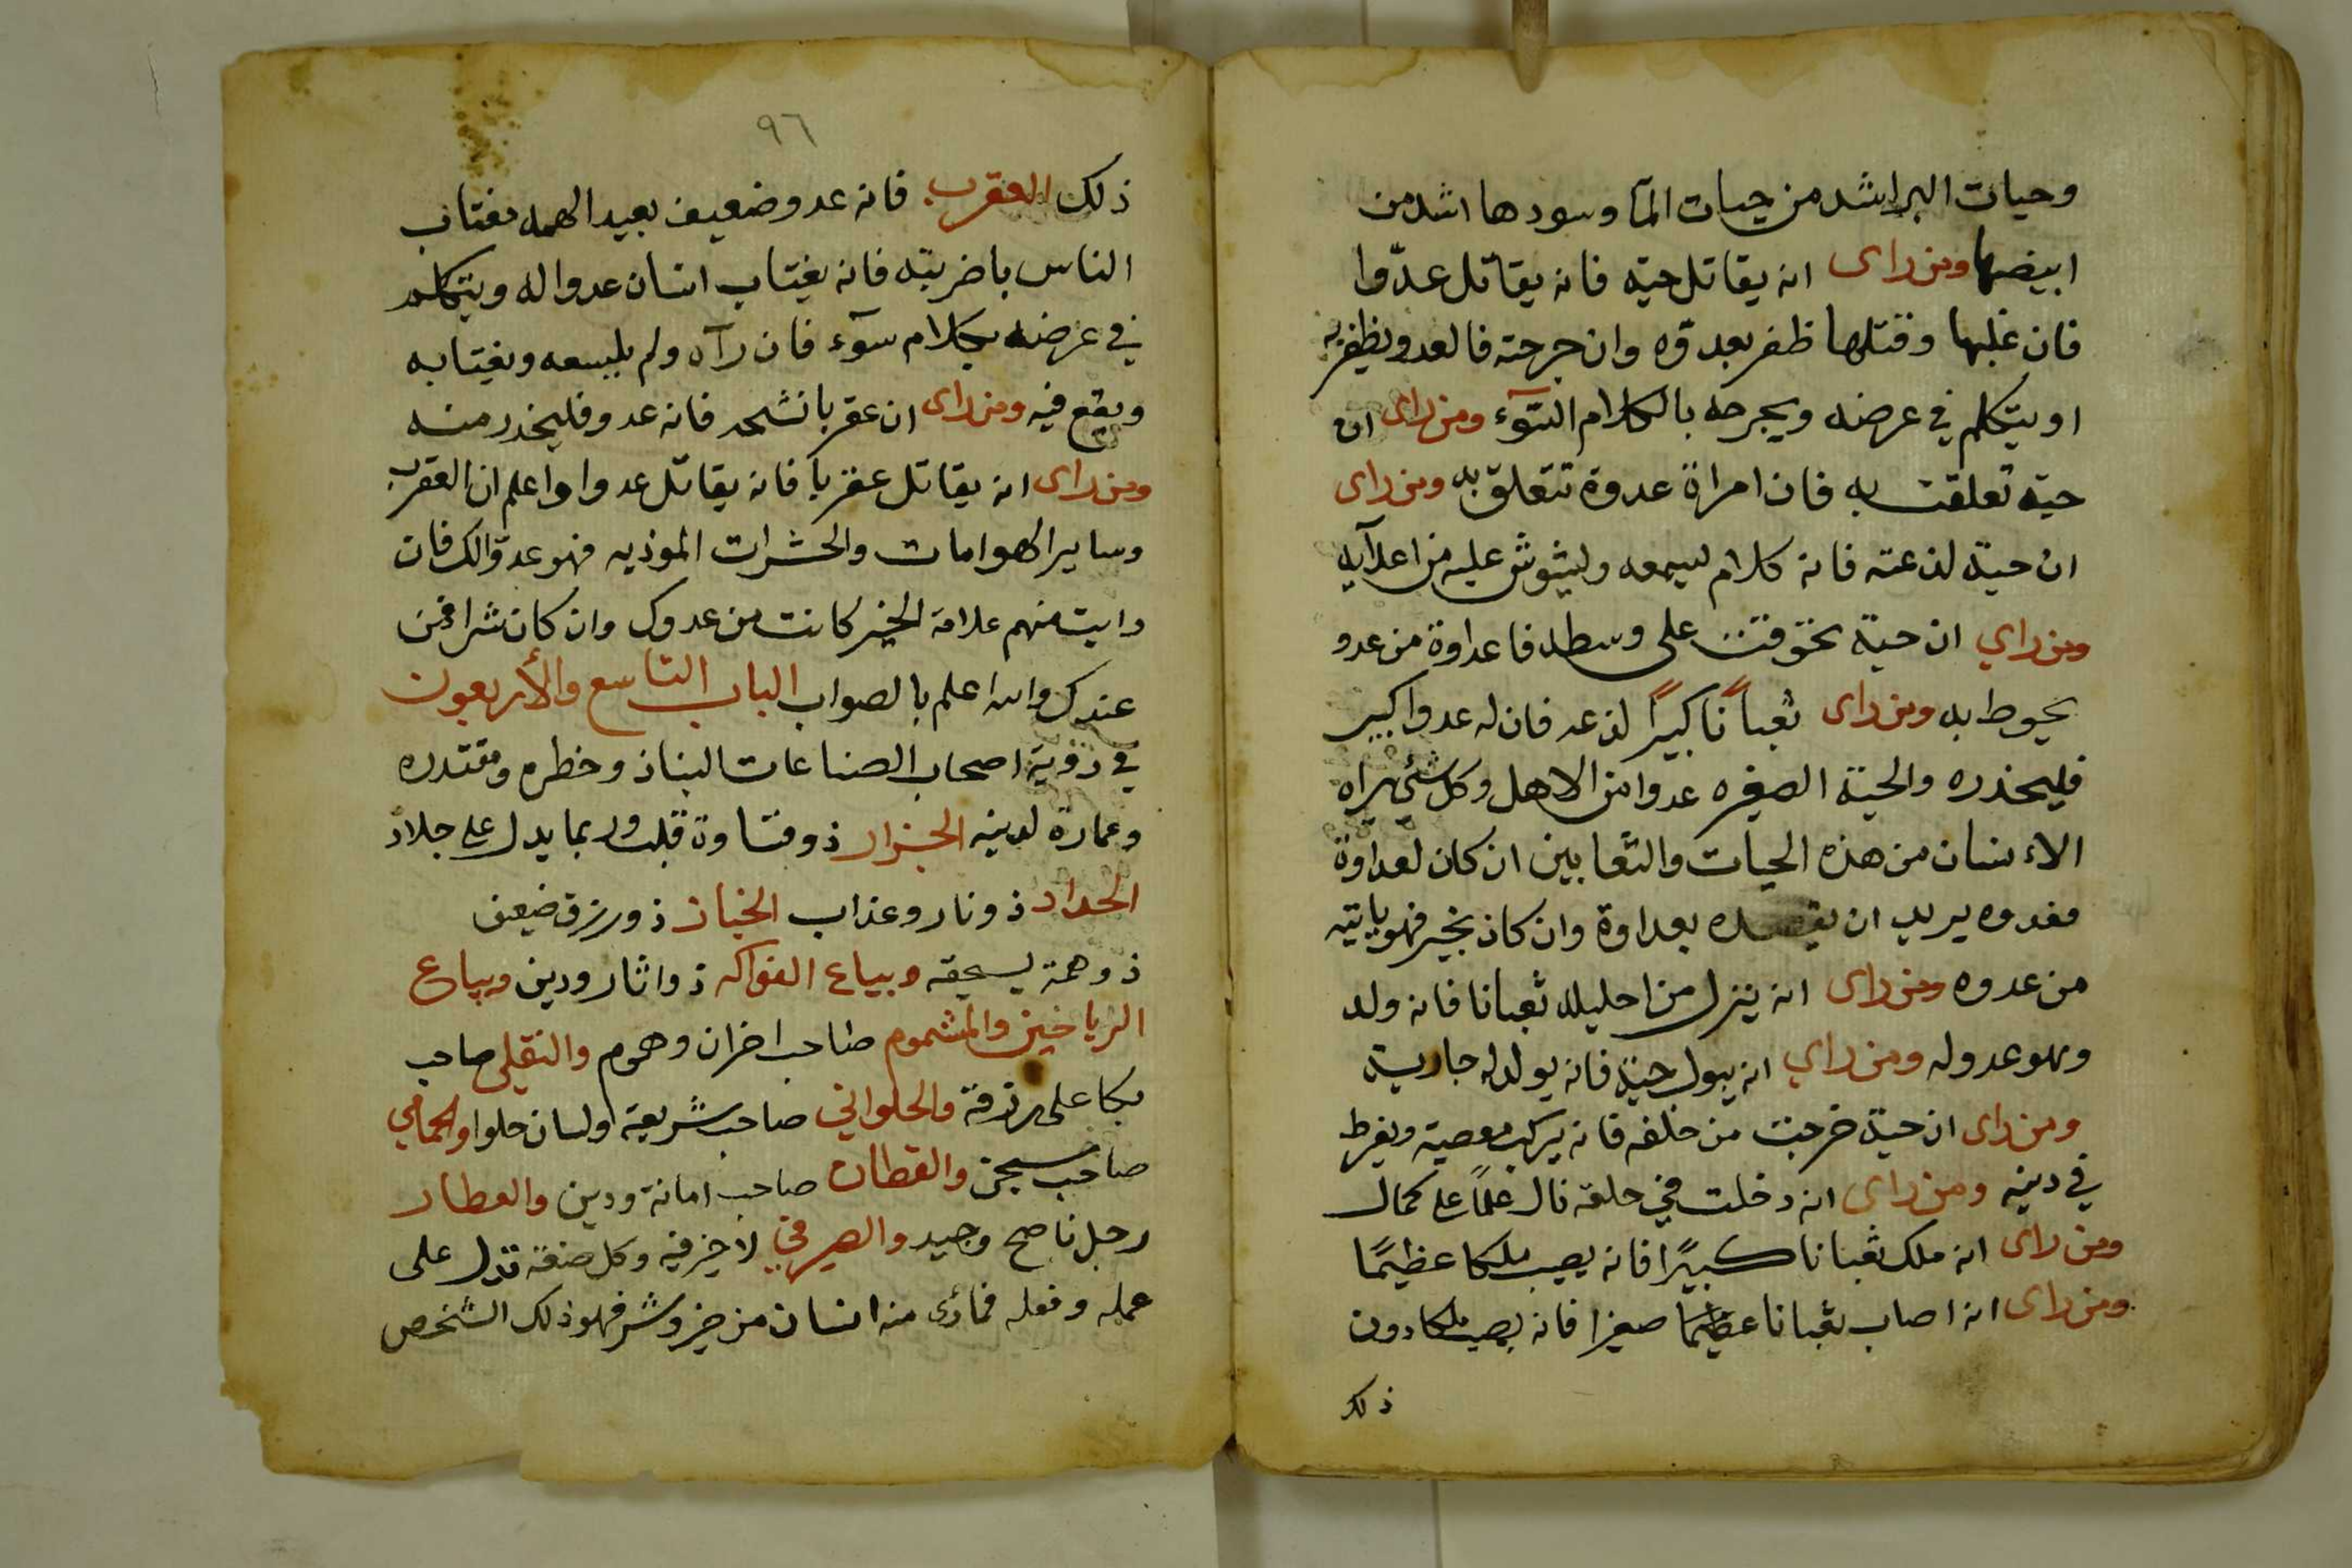 وحيات البر اشد من حيات المآ وسودها اشد من
ابيضها ومن راى انه يقاتل حيّة فانه يقاتل عدّوا
فان غلبها وقتلها ظفر بعدوّه وان جرحته فالعدو يظفر به
او يتكلم في عرضه ويجرحه بالكلام السّوٓء ومن راى ان
حية تعلقت به فان امراة عدوة تتعلق به ومن راى
ان حية لذعته فانه كلام ليسمعه وليشوش عليه من اعدآيه
ومن راي ان حية تحوقت على وسطه فاعداوة من عدو
يحوط به ومن راى ثعباناً كبيرًا لذعه فان له عدوا كبير
فليحذره والحية الصغيره عدوا من الاهل وكل شئ يراه
الاءنسان من هذه الحيات والثعابين ان كان لعداوة
فعدوه يريد ان يقصده بعداوة وان كان بخير فهو ياتيه
من عدوه ومن راى انه ينزل من احليله ثعبانا فانه ولد
وهو عدو له ومن راي انه يبول حية فانه يولد له جارية
ومن راى ان حية خرجت من خلفه فانه يركب معصية ويفرط
في دينه ومن راى انه دخلت في حلقه نال علمًا على كمال
ومن راى انه ملك ثعبانا كبيرًا فانه يصيب ملكا عظيمًا
ومن راى انه اصاب ثعبانا عظيما صغيرا فانه يصيب ملكا دون
ذلك
٩٦
ذلك العقرب فانه عدو ضعيف بعيد الهمه مغتاب
الناس باضربته فانه يغتاب انسان عدوا له ويتكلم
في عرضه بكلام سوٓء فان رآه ولم يلسعه ويغتابه
ويقع فيه ومن راى ان عقربا نشحد فانه عدو فليحذر منه
ومن راى انه يقاتل عقربا فانه يقاتل عدوا واعلم ان العقرب
وساير الهوامات والحشرات الموذيه فهو عدوّ الك فان
رايت منهم علامة الخير كانت من عدوك وان كان شرا فمن
عندك والله اعلم بالصواب الباب التاسع والأربعون
في رؤية اصحاب الصناعات البناذ وخطره ومقتدره
وعمارة لدينه الجزار ذو قساوة قلب وربما يدل على جلاد
الحداد ذو نار وعذاب الخباز ذو رزق ضعيف
ذو همة يسحقه وبياع الفواكه ذو اثار ودين وبياع
الرياحين والمشموم صاحب احزان وهموم والنقلي صاحب
بكا على رزقه والحلواني صاحب شريعة ولسان حلوا والحمامي
صاحب سجن والقطان صاحب امانة ودين والعطار
رجل ناصح وجيد والصيرفي لا خير فيه وكل صنعة تدل على
عمله وفعله فما رأى منه انسان من خير وشر فهو ذلك الشخص